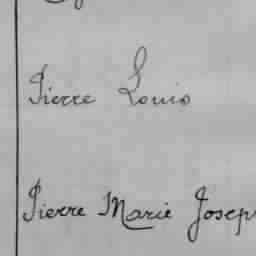 Pierre Louis
Pierre Marie Josep